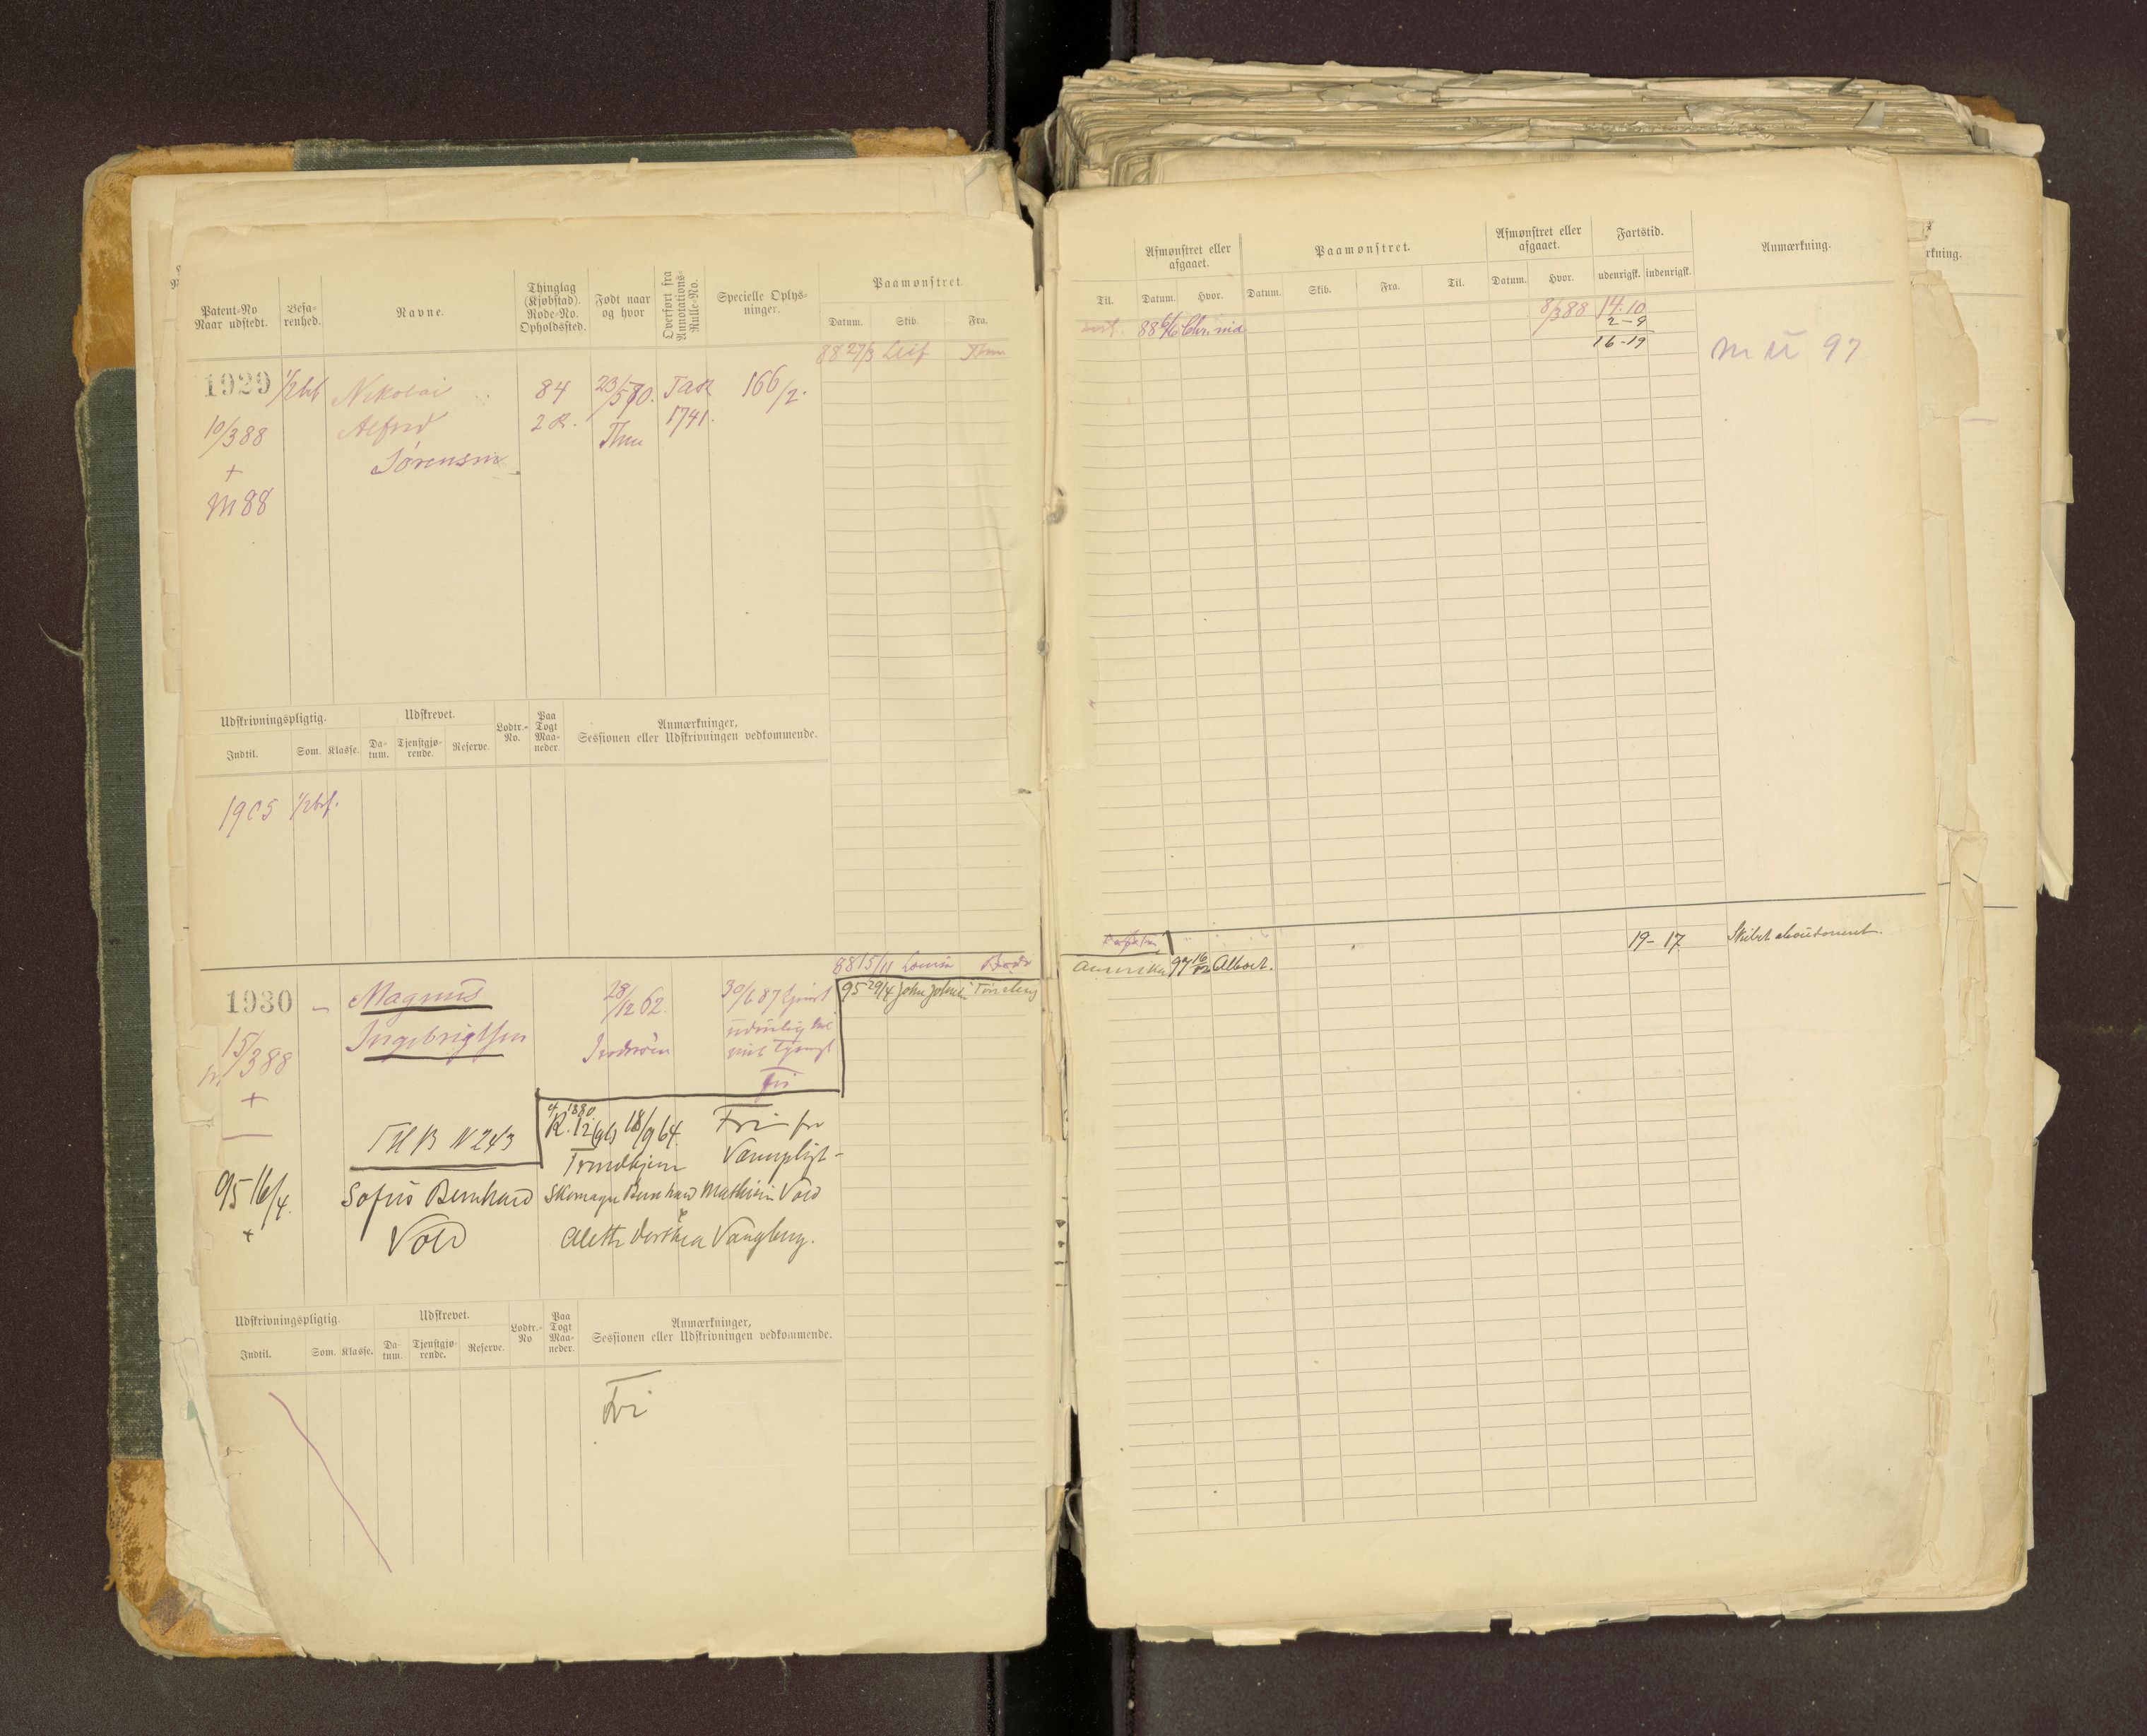 Patent-No Naar udstedt.
Befarenhed.
Navne.
Thinglag (Kjøbstad). Rode-No. Opholdssted.
Født naar og hvor
Overført fra Annotations-Rulle-No.
Specielle Oplysninger.
Paamønstret.
Datum.
Skib.
Fra.
88 27/3 Leif Thm
1929 1/2 bf Nikolai 84 23/5 70. TAR 166/2.
10/3 88 Alfred 2 R. Thm 1741.
+ Sørensen
M 88
Udskrivningspligtig.
Udskrevet.
Lodtr.-No.
Paa Togt Maaneder.
Anmærkninger, Sessionen eller Udskrivningen vedkommende.
Indtil.
Som.
Klasse.
Datum.
Tjenstgjørende.
Reserve.
1905 1/2 bf.
88 15/11 Louisa Bodø
1930 - Magnus 28/12 62. 30/6 87
95 29/4 John Johnson Tönsberg
Ingebrigtsen Inderøen
15/3 88
+
fri
THB N 243
R. 12 18/9 64. Fri for
1880
Trondhjem Værnepligt-
95 16/4. Sofus Bernhard Skomager Bernhard Mathisen Vold
+
Vold Aleth Dorthea Vangberg.
Udskrivningspligtig.
Udskrevet.
Lodtr.-No
Paa Togt Maaneder.
Anmærkninger, Sessionen eller Udskrivningen vedkommende.
Indtil.
Som.
Klasse.
Datum.
Tjenstgjørende.
Reserve.
Fri
Til.
Afmønstret eller afgaaet.
Datum.
Hvor.
Paamønstret.
Datum.
Skib.
Fra.
Til.
Afmønstret eller afgaaet.
Datum.
Hvor.
Fartstid.
udenrigsk.
indenrigsk.
Anmærkning.
rkning.
8/3 88 14.10
88 6/6 Chr.nia 2-9
16-19
M U 97
19-17 Skibet
Amerika 97 16/12